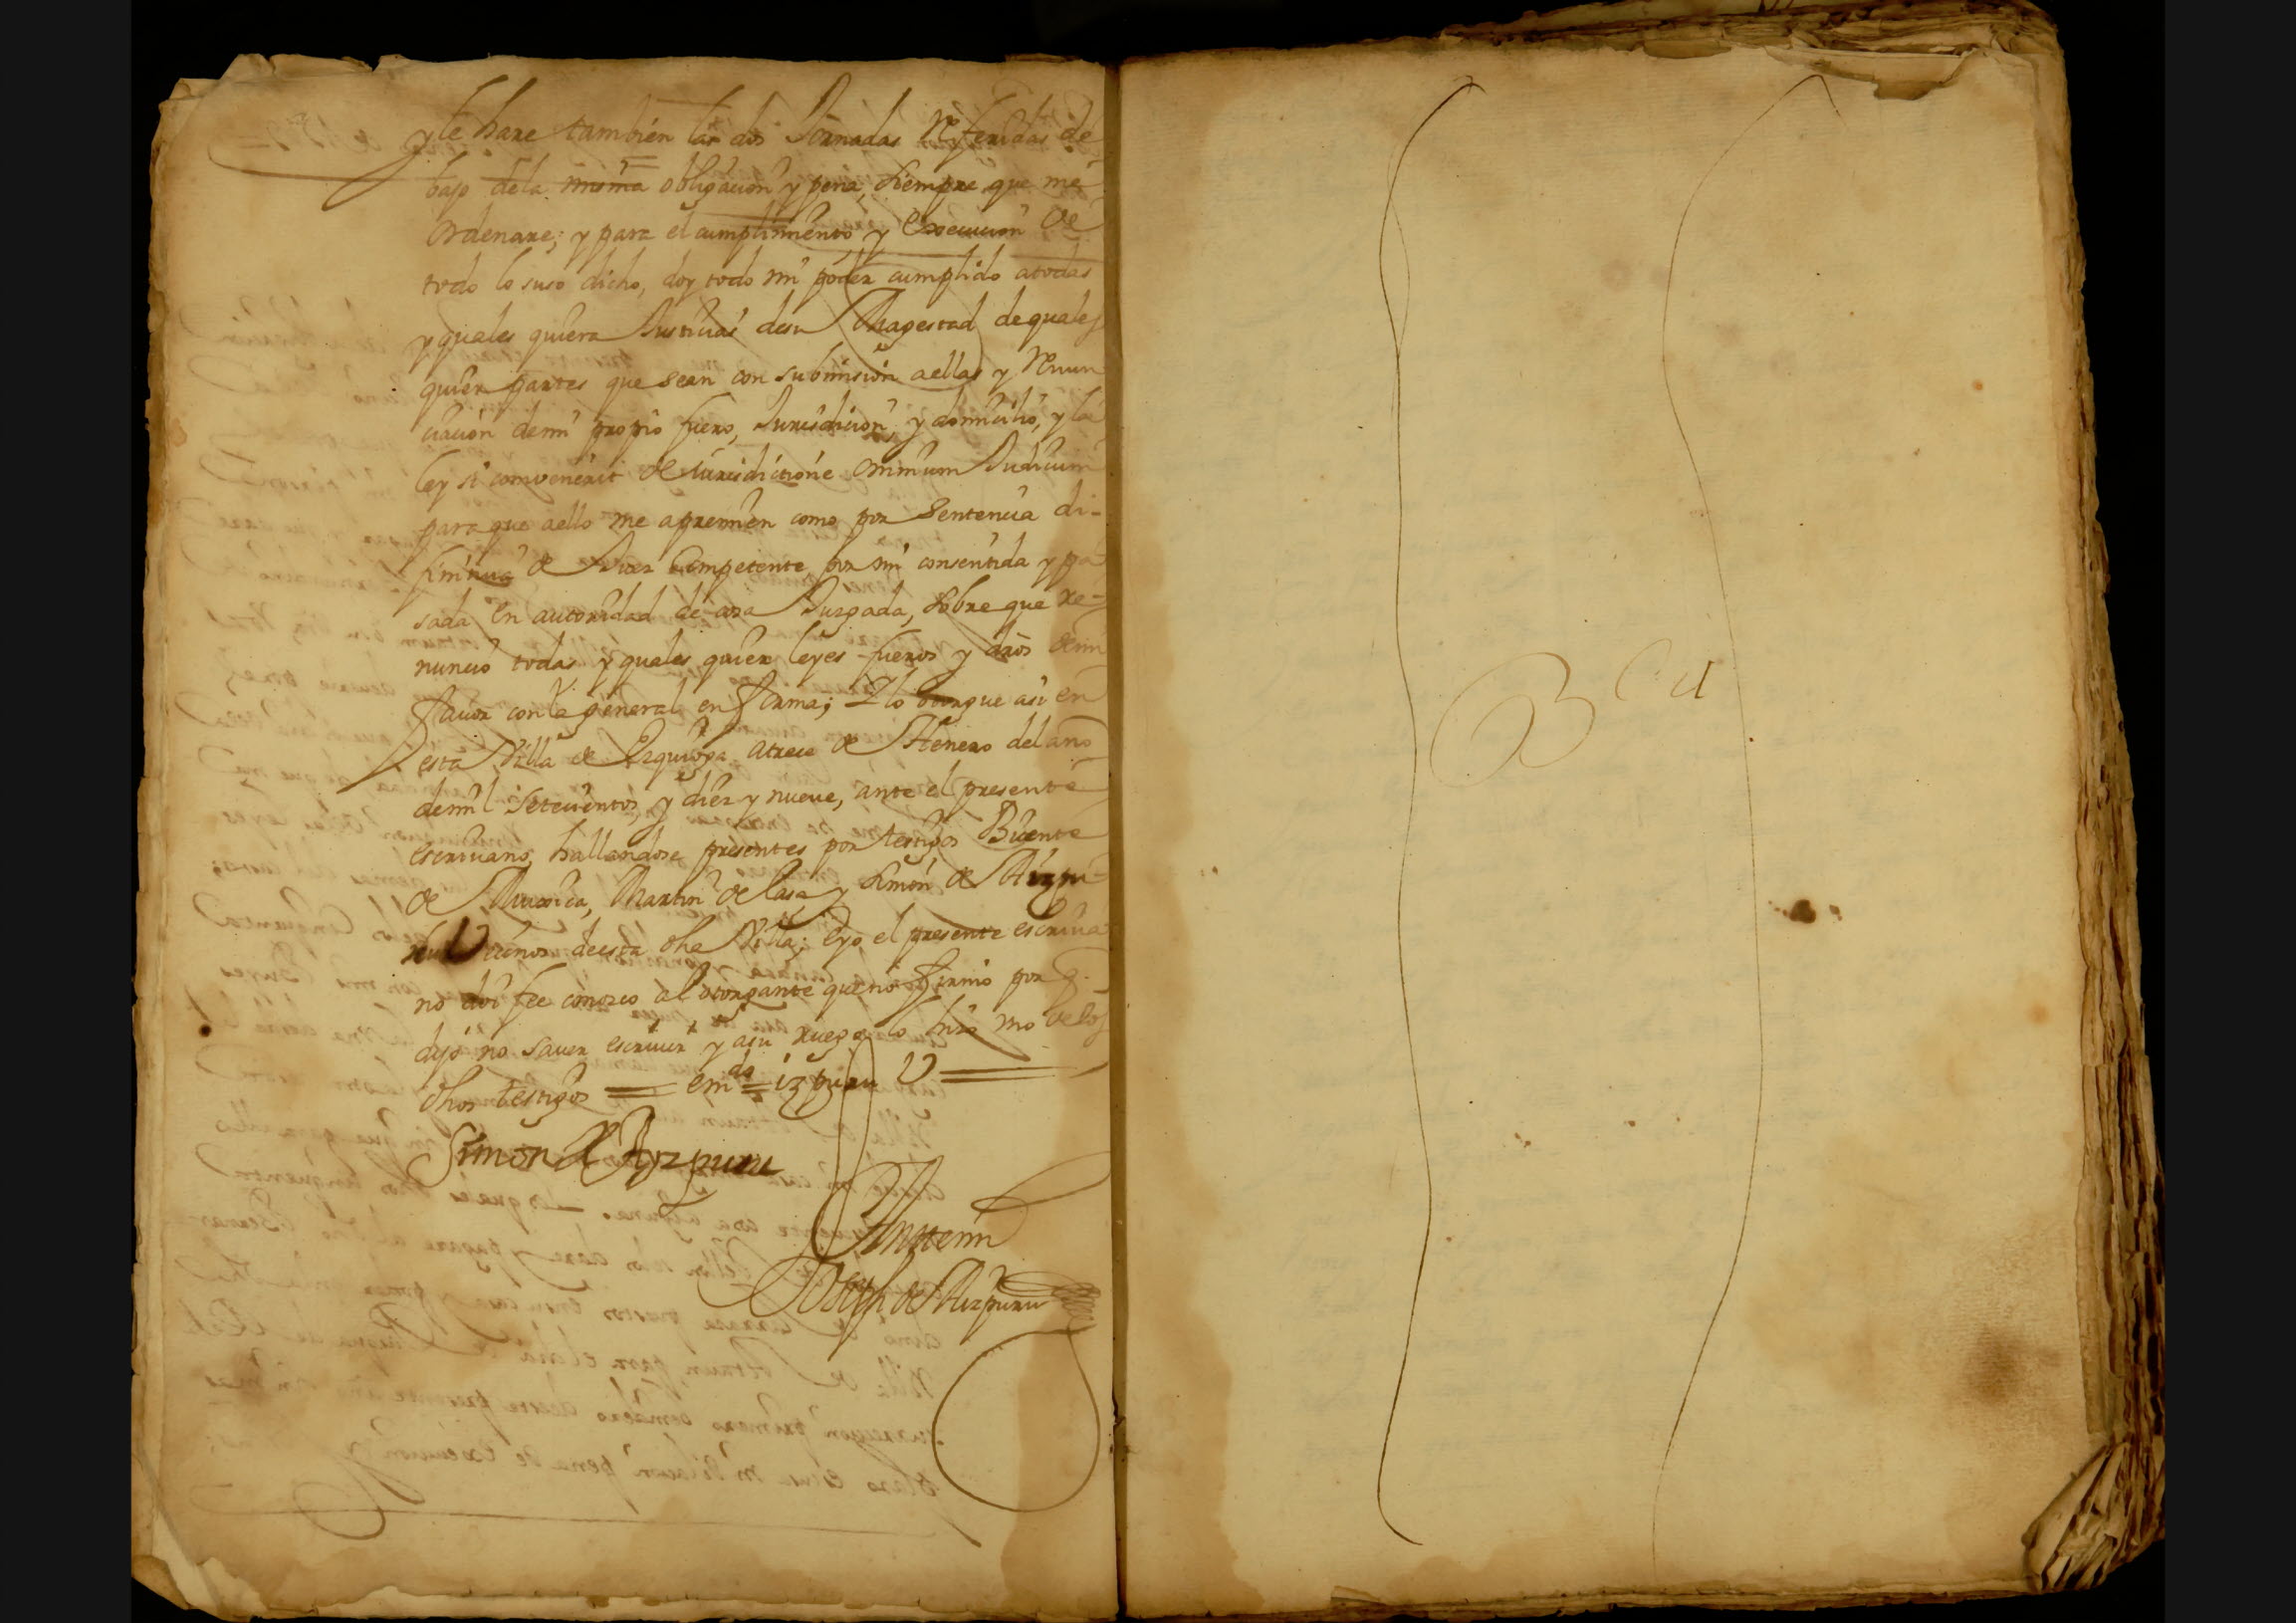 y le hare tambien las dos Jornadas Referidas de
bajo dela misma obligacion y pena, siempre que me
ordenare; y para el cumplimiento y execucion de
todo lo suso dicho, doy todo mi poder cumplido a todas
y quales quiera Justicias desu Magestad de quales
quier partes que sean con submision a ellas y Renun
ciacion demi propio fuero, Jurisdicion, y domicilio, y la
ley si convenerit de Jurisdictione omnium Judicum
para que aello me apremien como por sentencia di-
finitiva de Juez Competente por mi consentida y pa
sada en autoridad de cosa Juzgada, sobre que re-
nuncio todas y quales quier leyes fueros y dros demi
favor con la general en forma; Y lo otorgue asi en
esta Villa de Ezquioga atrece de Henero del año
demil setecientos y diez y nueve, ante el presente
escrivano, hallandose presentes por testigos Bicente
de, Martin de Lasa y Simon de Aizpu
ru Vecinos deesta dha Villa; Eyo el presente escriva
no doi fee conozco al otorgante que no firmo por q.
dijo no saver escrivir y asu ruego lo hizo uno delos
dhos testigos = em.do = izpuru V =
Simon de Ayzpuru
Antemi
Joseph de Aizpuru